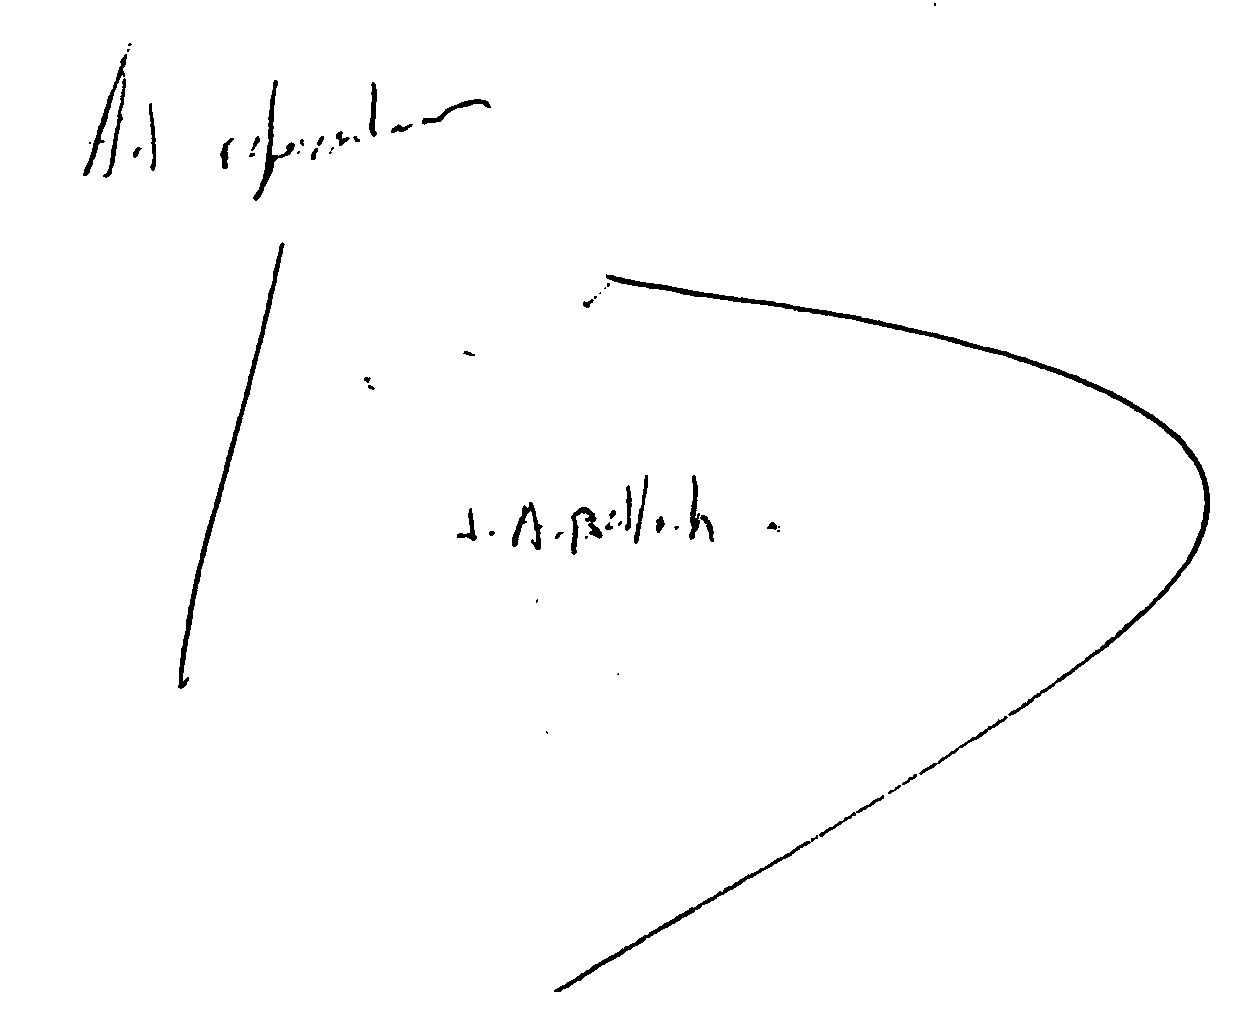 Ad referendum
J. A. Belloch